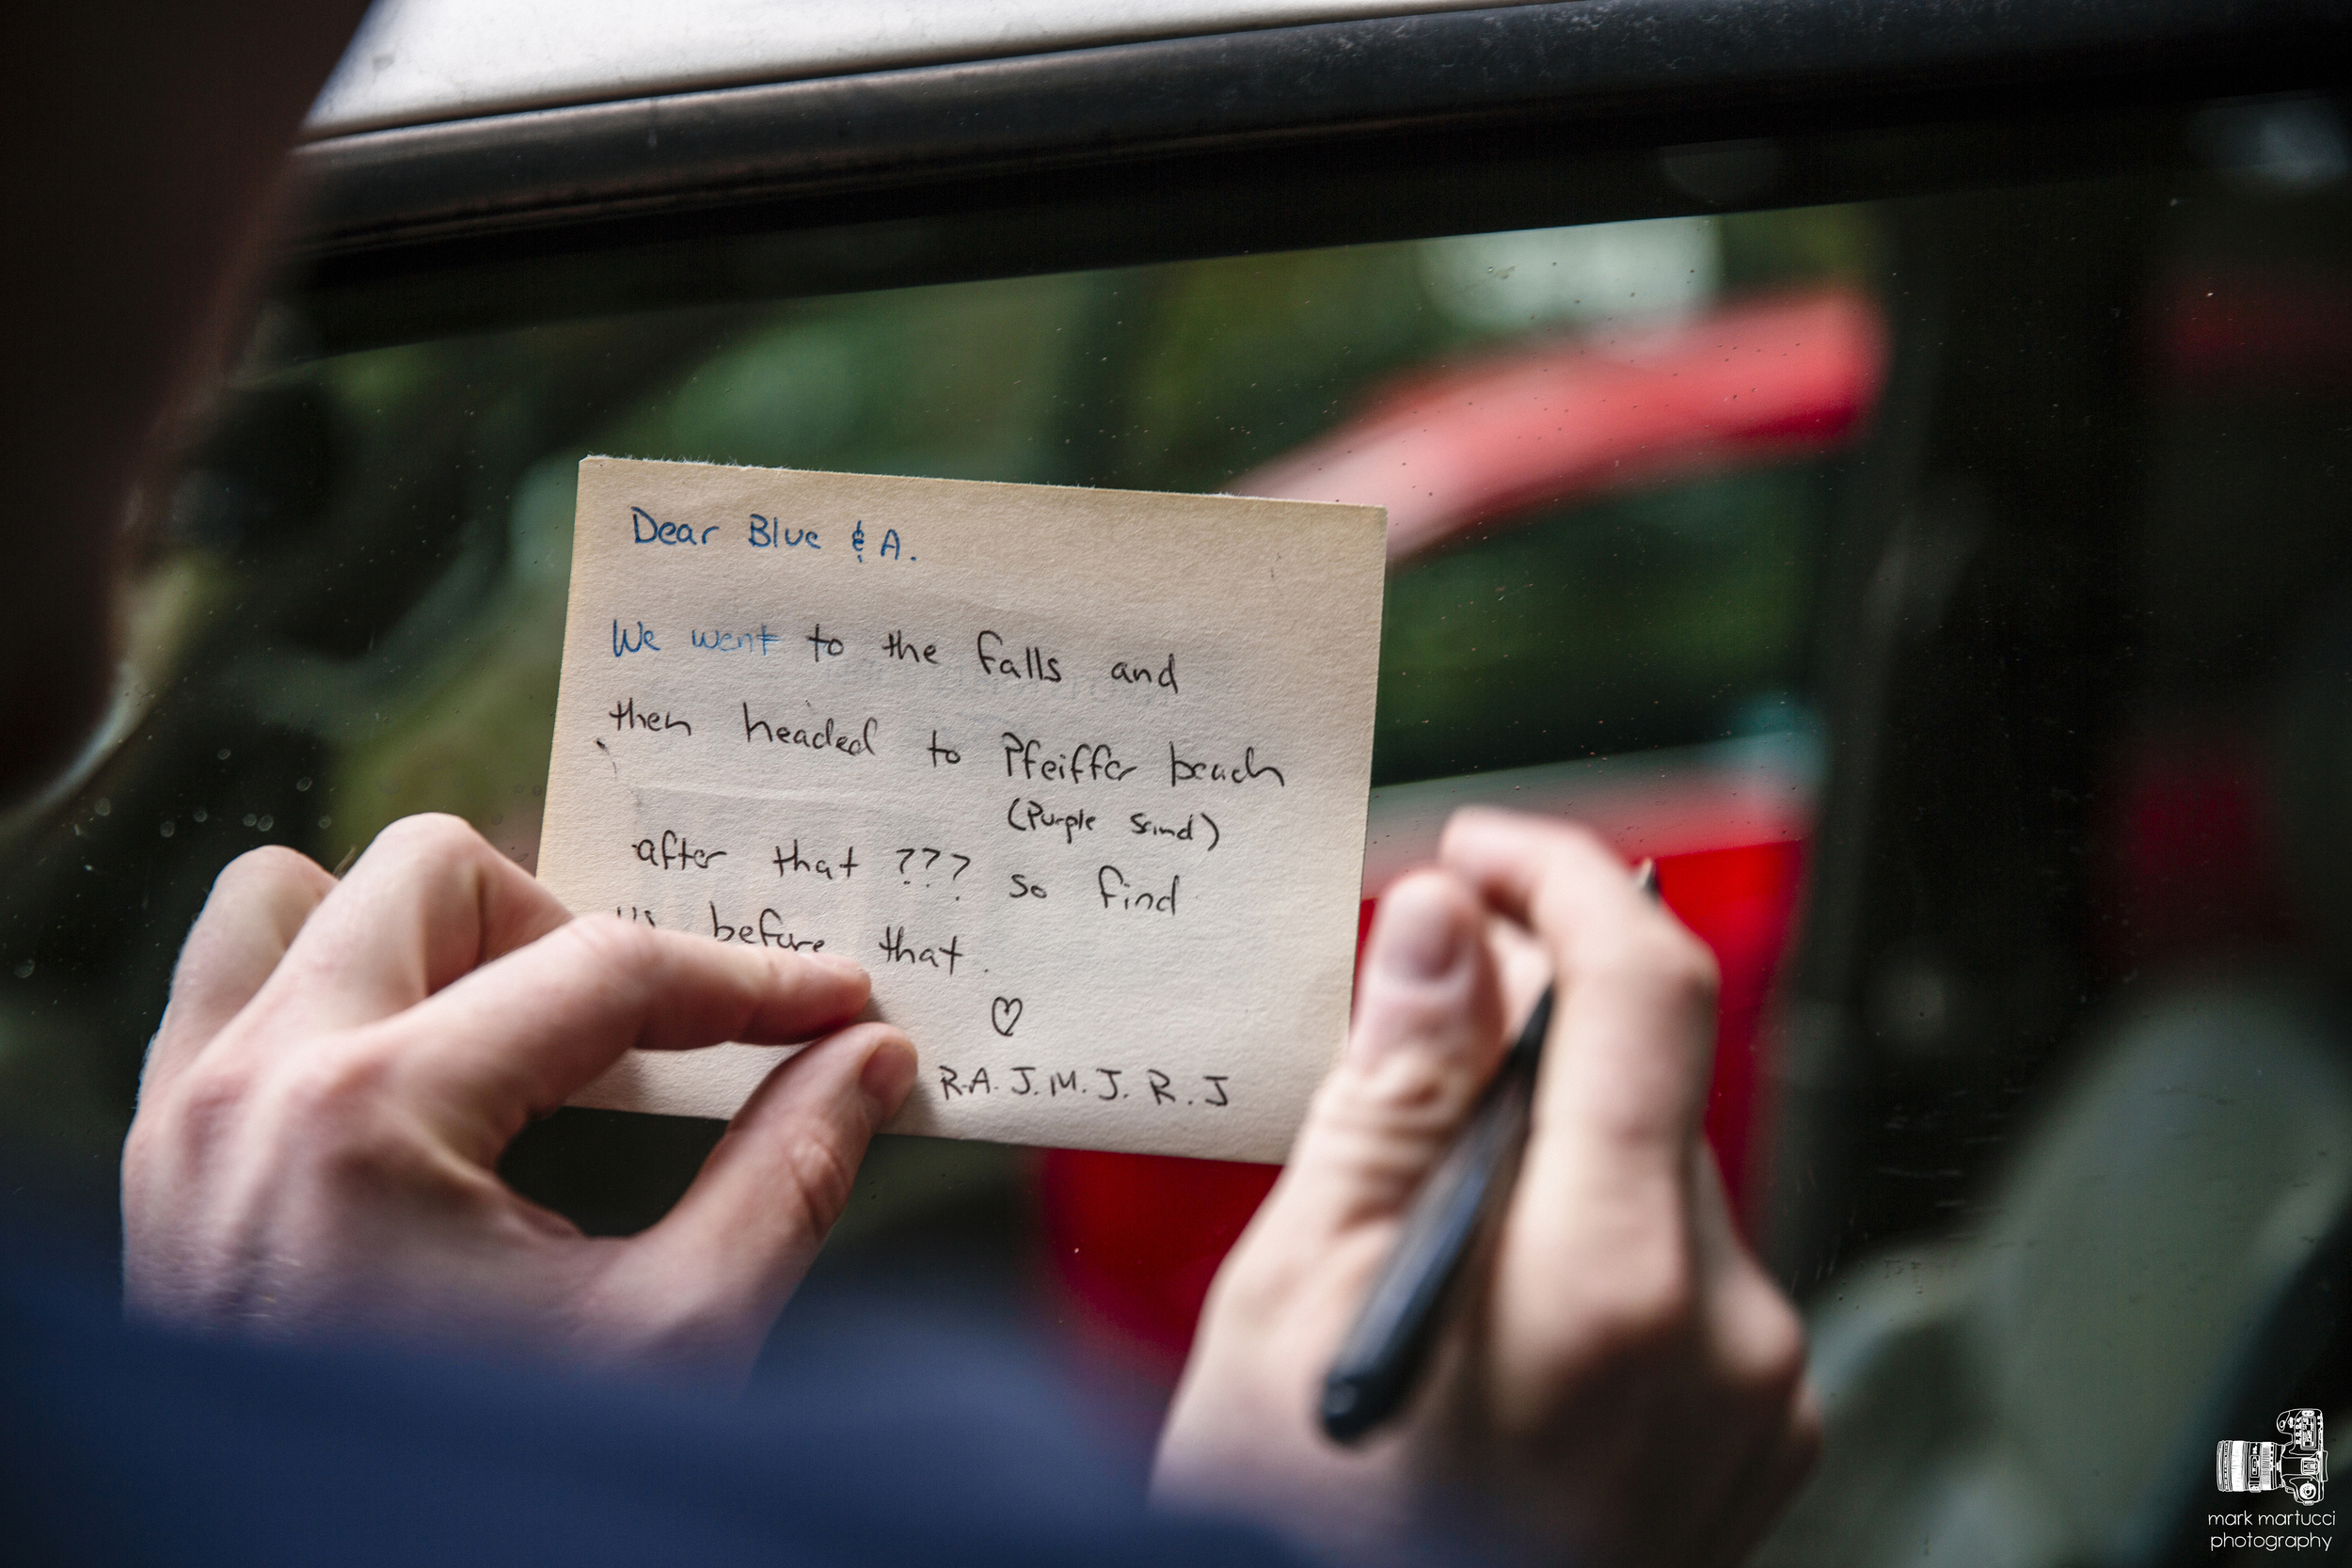 Dear Blue & A.
We went to the falls and
then headed to Pfeiffer beach
(Purple Sand)
after that ??? so find
us before that.
♡
R.A. J.M. J. R. J
mark martucci
photography